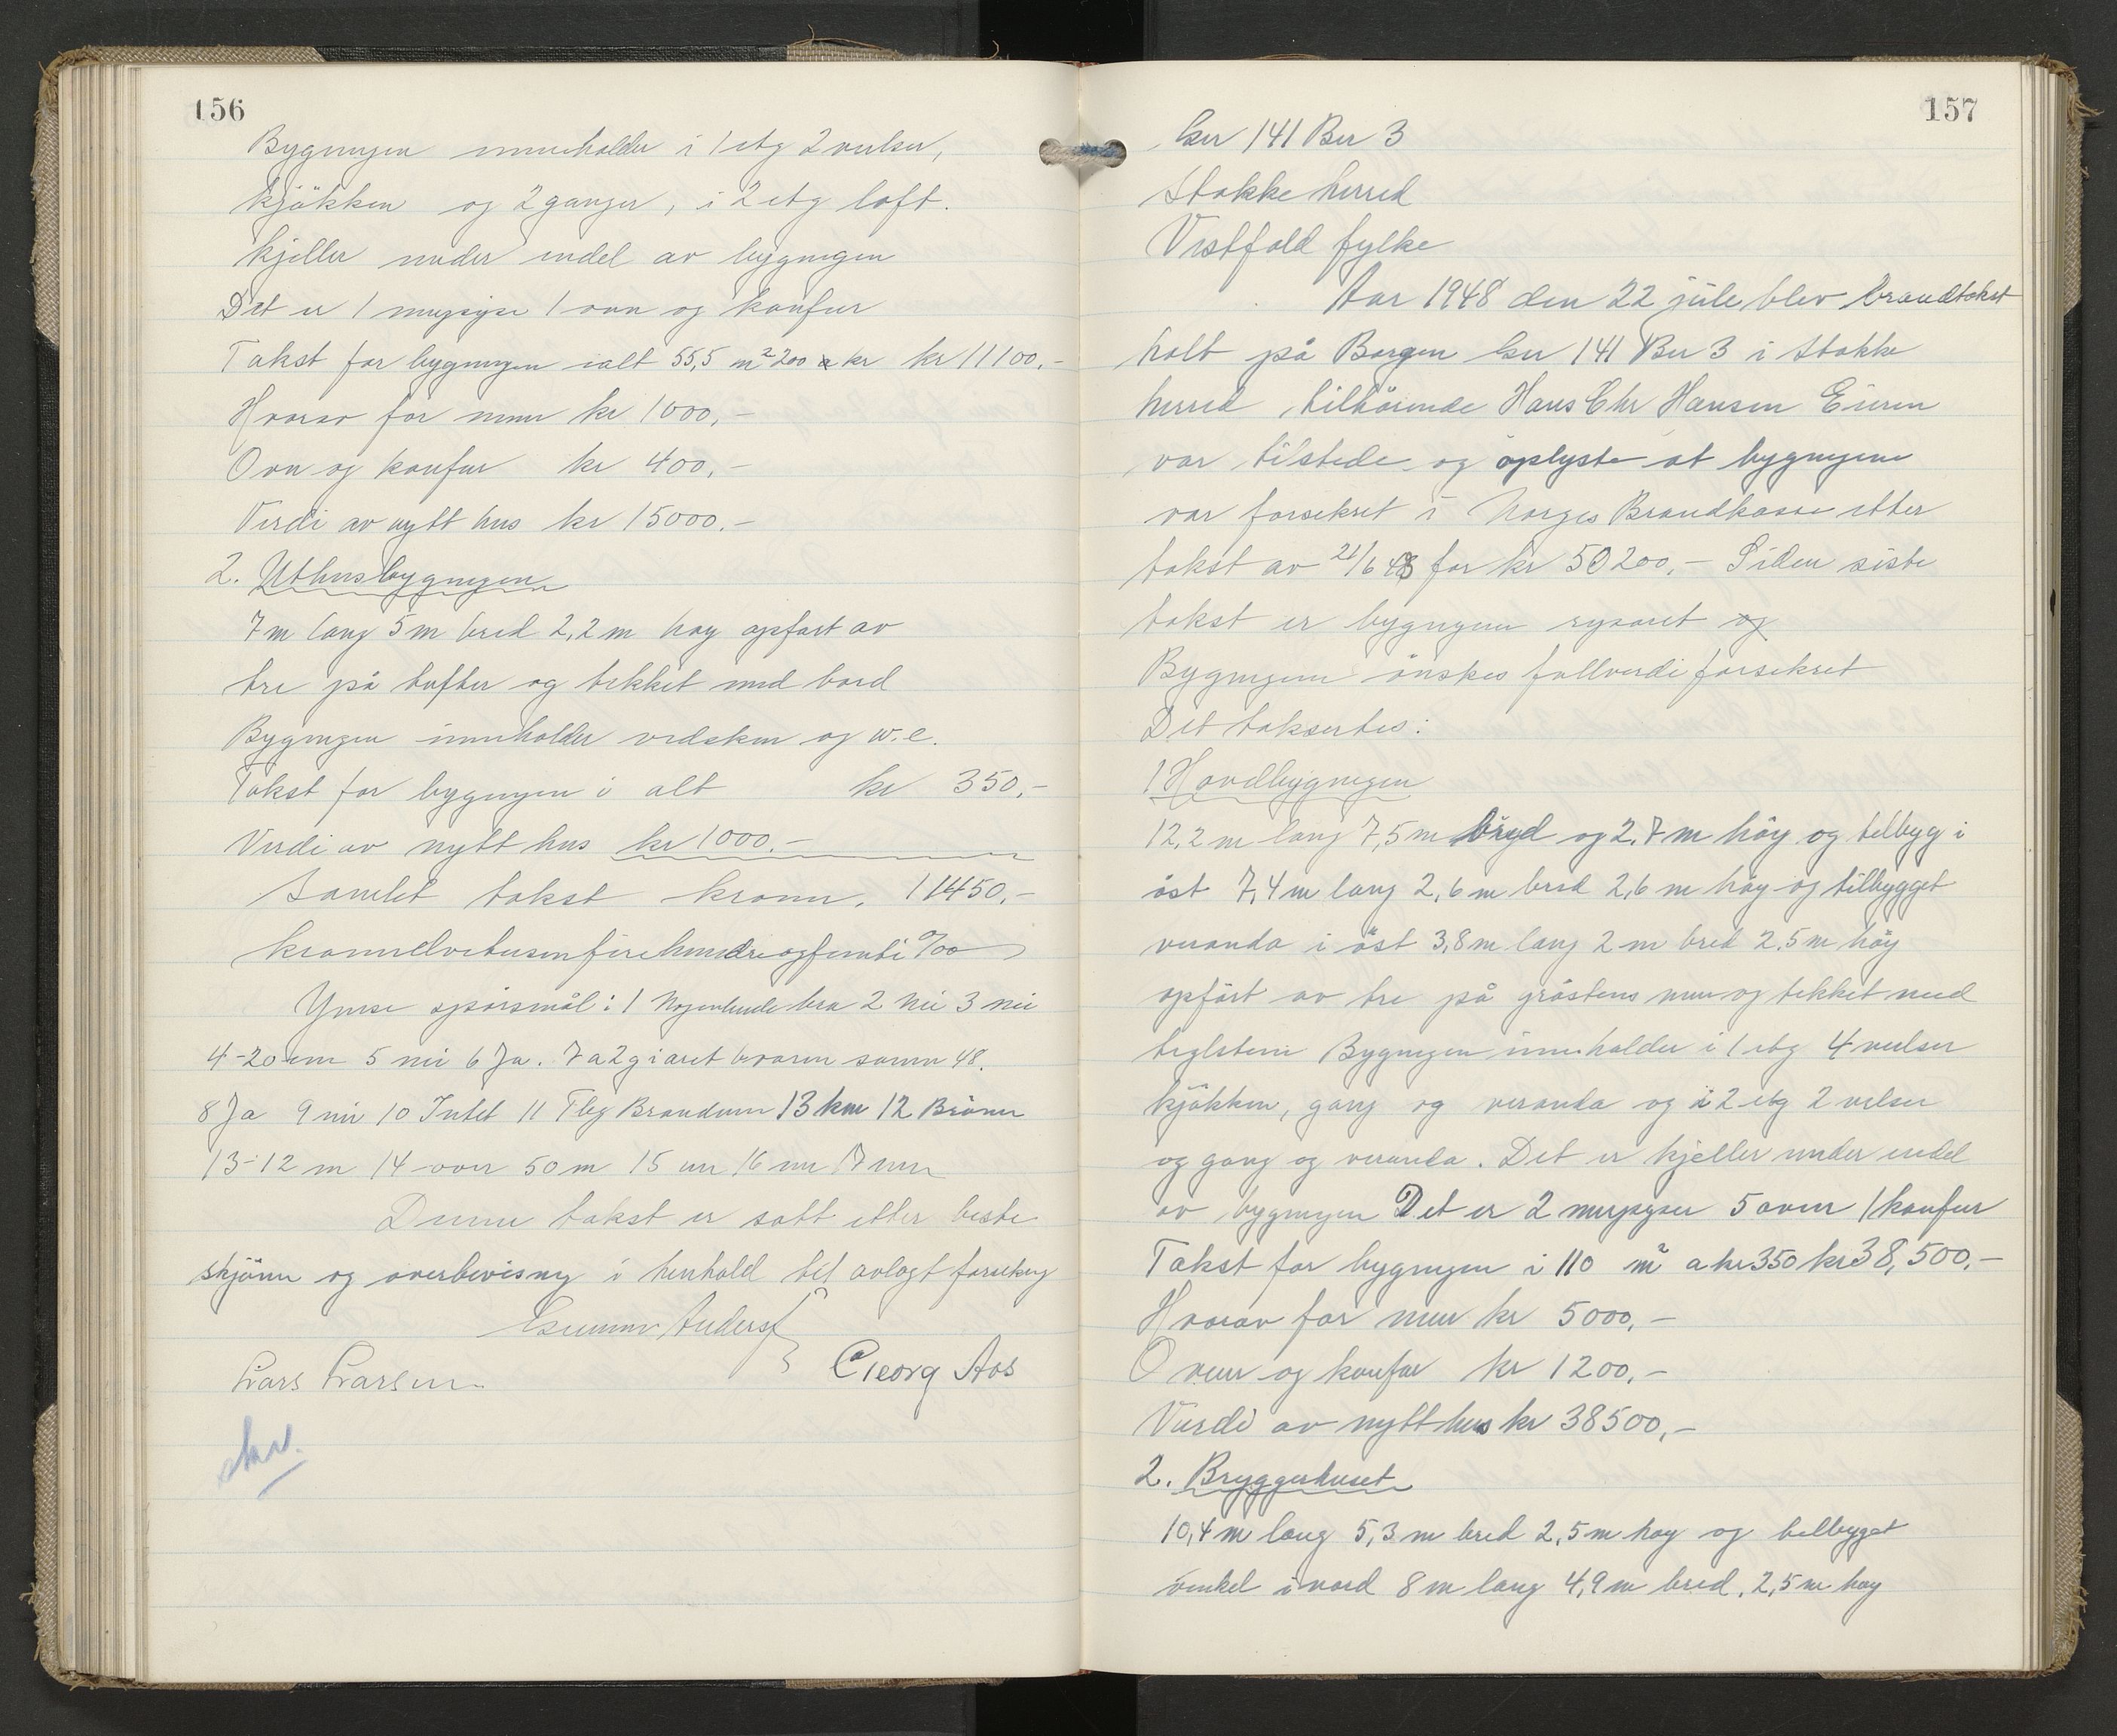 156
Bygningen inneholder i 1 etg 2 verlser,
kjökken og 2 ganger, i 2 etg loft.
kjeller under endel av bygningen
Det er 1 murpipe 1 ovn og komfur
Takst for bygningen ialt 55,5 m² 200 a kr kr 11100.-
Hvorav for mur kr 1000,-
Ovn og komfur kr 400,-
Verdi av nytt hus kr 15000.-
2. Uthusbygningen
7 m lang 5 m bred 2,2 m høy opført av
tre på tufter og tekket med bord
Bygningen inneholder vedskur og w.c.
Takst for bygningen i alt kr 350.-
Verdi av nytt hus kr 1000.-
Samlet takst kroner. 11450.-
kronerelvetusenfirehundreogfemti %oo
Ymse spörsmål: 1 Nogenlunde bra 2 Nei 3 nei
4-20 cm 5 nei 6 Ja. 7 a 2 g i året b varen samm 48.
8 Ja 9 nei 10 Intet 11 Tbg Brandvern 13 km 12 Brönn
13-12 m 14 over 50 m 15 nei 16 nei 17 nei
Denne takst er satt etter beste
skjönn og overbevisning i henhold til avlagt forsikring
Gunnar Anders
Lars Larsen Georg Aos
157
Gnr 141 Bnr 3
Stokke herred
Vestfold fylke
Aar 1948 den 22 juli blev brandtakst
holt på Borgen Gnr 141 Bnr 3 i Stokke
herred, tilhörende Hans Chr Hansen Eieren
var tilstede og oplyste at bygningene
var forsikret i Norges Brandkasse etter
takst av 21/6 43 for kr 50200,- Siden siste
takst er bygningene reparert og
Bygningene önskes fullverdi forsikret
Det taksertes:
1 Hovdbygningen
12,2 m lang 7,5 m bred og 2,7 m höy og tilbyg i
öst 7,4 m lang 2,6 m bred 2,6 m höy og tilbygget
veranda i öst 3,8 m lang 2 m bred 2.5 m höy
opfört av tre på gråstens mur og tekket med
teglstein Bygningen inneholder i 1 etg 4 verlser
kjökken, gang og veranda og i 2 etg 2 velser
og gang og veranda. Det er kjeller under endel
av bygningen Det er 2 murpiper 5 ovner 1 komfur
Takst for bygningen i 110 m² a kr 350 kr 38,500.-
Hvorav for mur kr 5000,-
Ovner og komfur kr 1200,-
Verdi av nytt hus kr 38500,-
2. Bryggerhuset
10,4 m lang 5,3 m bred 2,5 m høy og tilbyget
vinkel i nord 8 m lang 4,9 m bred, 2,5 m høy